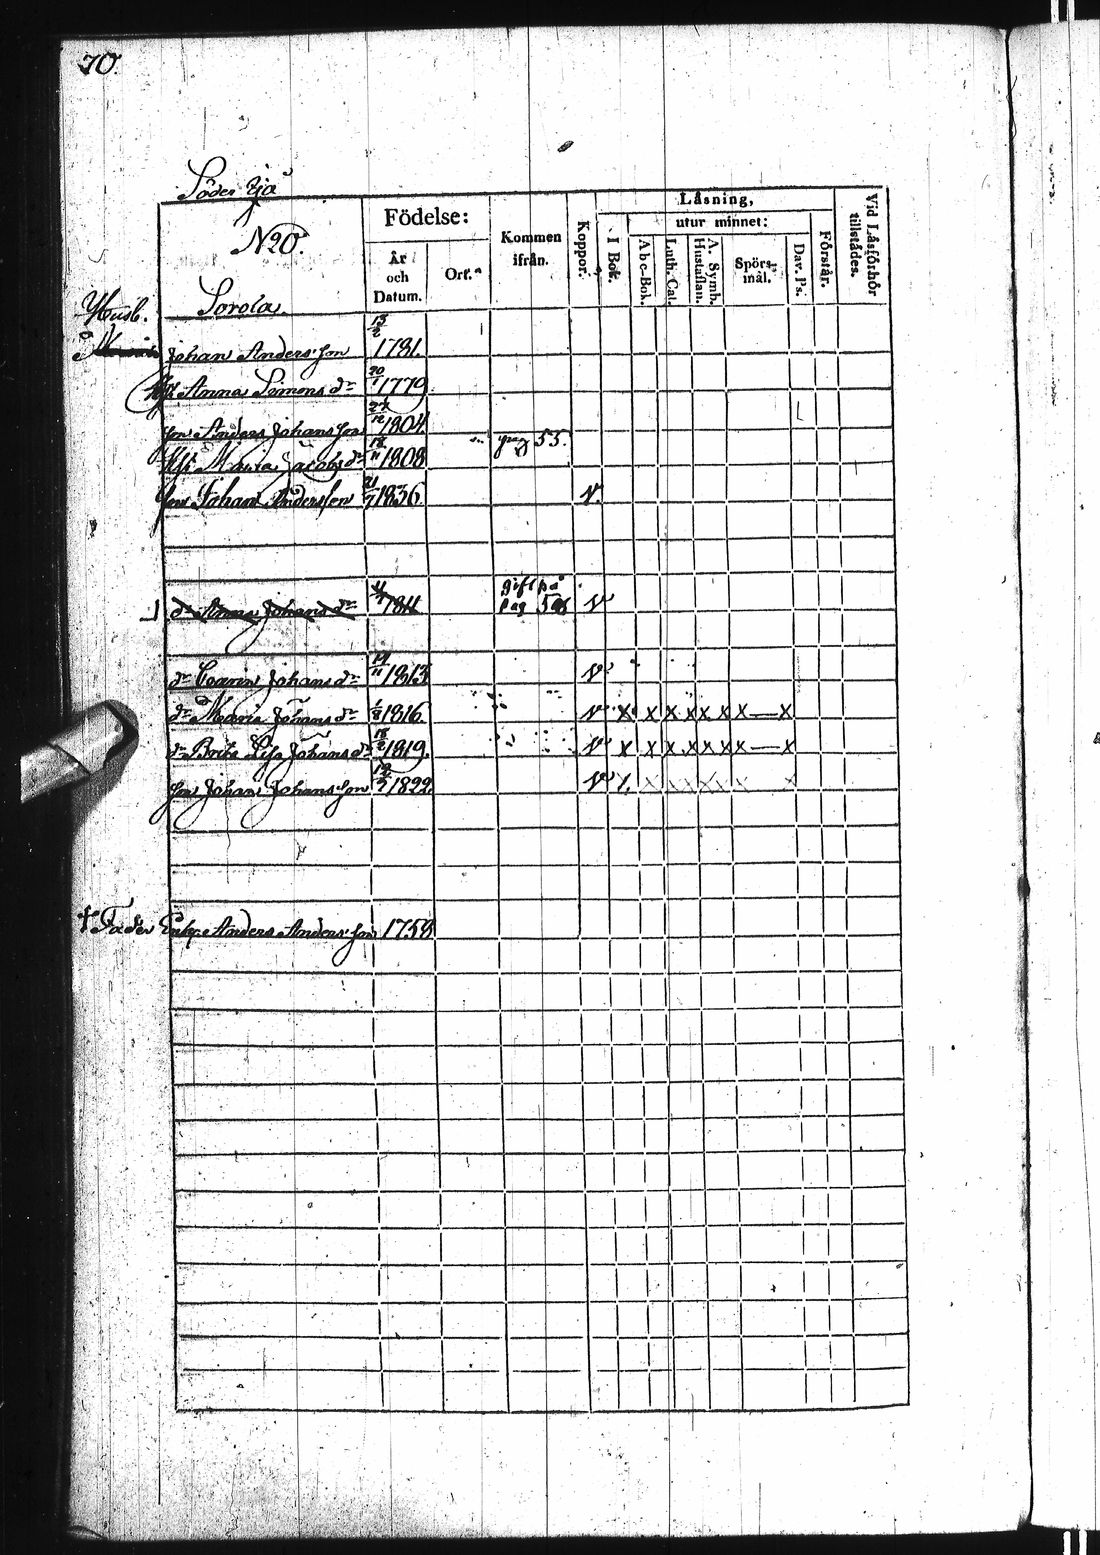 70.
Söder
N20.
Födelse:
År
och
Datum.
Ort.
Kommen
ifrån.
Koppor.
Låsning,
I Bok.
utur minnet:
Abc-Bok.
Luth. Cat.
A. Symb.
Hustaflan.
Spörs-
mål.
Dav. Ps.
Förstår.
Vid Låsförhör
tillstådes.
Husb. Sorola.
Johan Anders son 13/2 1781.
Anna Simons dr 20/1 1779
son Anders Johans son 27/12 1804.
Maria Jacobs dr 18/11 1808 pag 55.
son Johan Andersson 21/7 1836. V.
dr Anna Johans dr 1811 gift på pag V
dr Caarin Johans dr 14/11 1813 V
dr Maria Johans dr 1/8 1816. V X X X X X X X — X
dr Brita Lisa Johans dr 18/2 1819. V X X X X X X X — X
son Johan Johans son 1822. V X X X X X X X
† Fader Enkl. Anders Anders son 1758